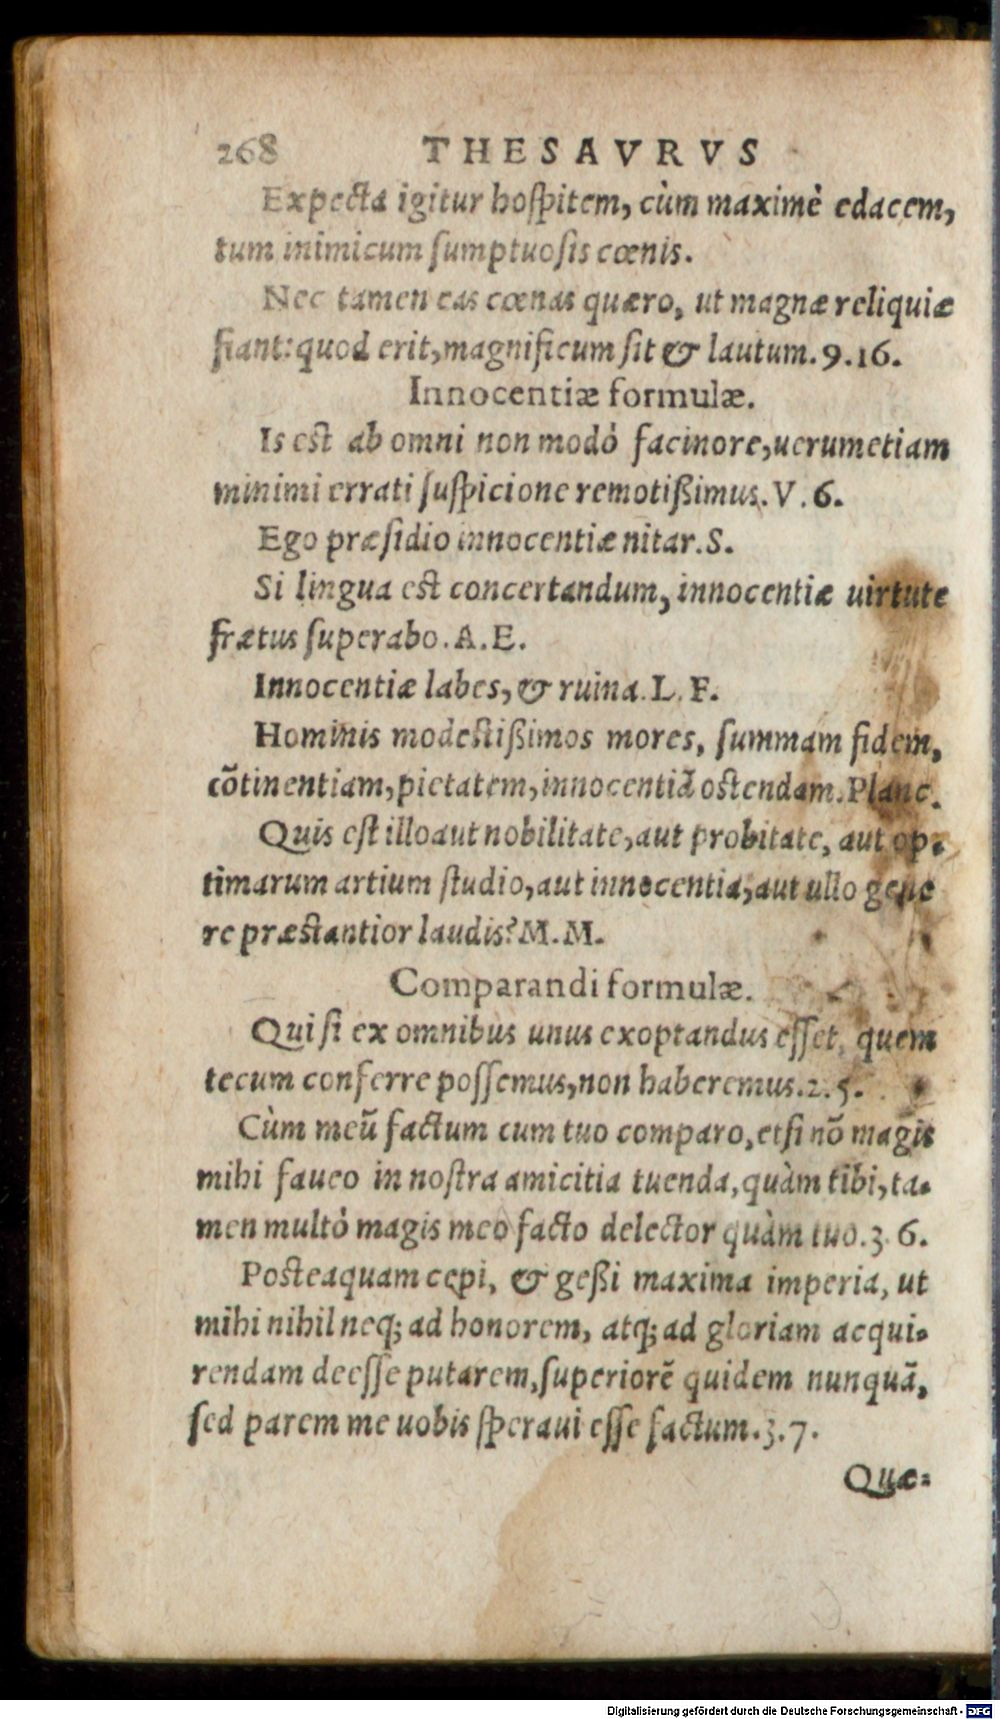 268 THESAVRVS
Expecta igitur hospitem, cùm maximè edacem,
tum inimicum sumptuosis cœnis.
Nec tamen eas cœnas quæro, ut magnæ reliquiæ
fiant: quod erit, magnificum sit & lautum. 9.16.
Innocentiæ formulæ.
Is est ab omni non modò facinore, uerumetiam
minimi errati suspicione remotißimus. V. 6.
Ego præsidio innocentiæ nitar. S.
Si lingua est concertandum, innocentiæ uirtute
frætus superabo. A. E.
Innocentiæ labes, & ruina. L. F.
Hominis modestißimos mores, summam fidem,
cõtinentiam, pietatem, innocentiã ostendam. Planc.
Quis est illo aut nobilitate, aut probitate, aut op-
timarum artium studio, aut innocentia, aut ullo gene
re præstantior laudis? M. M.
Comparandi formulæ.
Qui si ex omnibus unus exoptandus esset, quem
tecum conferre possemus, non haberemus. 2. 5.
Cùm meũ factum cum tuo comparo, etsi nõ magis
mihi faueo in nostra amicitia tuenda, quàm tibi, ta-
men multò magis meo facto delector quàm tuo. 3. 6.
Posteaquam cępi, & geßi maxima imperia, ut
mihi nihil neq; ad honorem, atq; ad gloriam acqui-
rendam deesse putarem, superiorẽ quidem nunquã,
sed parem me uobis speraui esse factum. 3. 7.
Quæ-
Digitalisierung gefördert durch die Deutsche Forschungsgemeinschaft - DFG